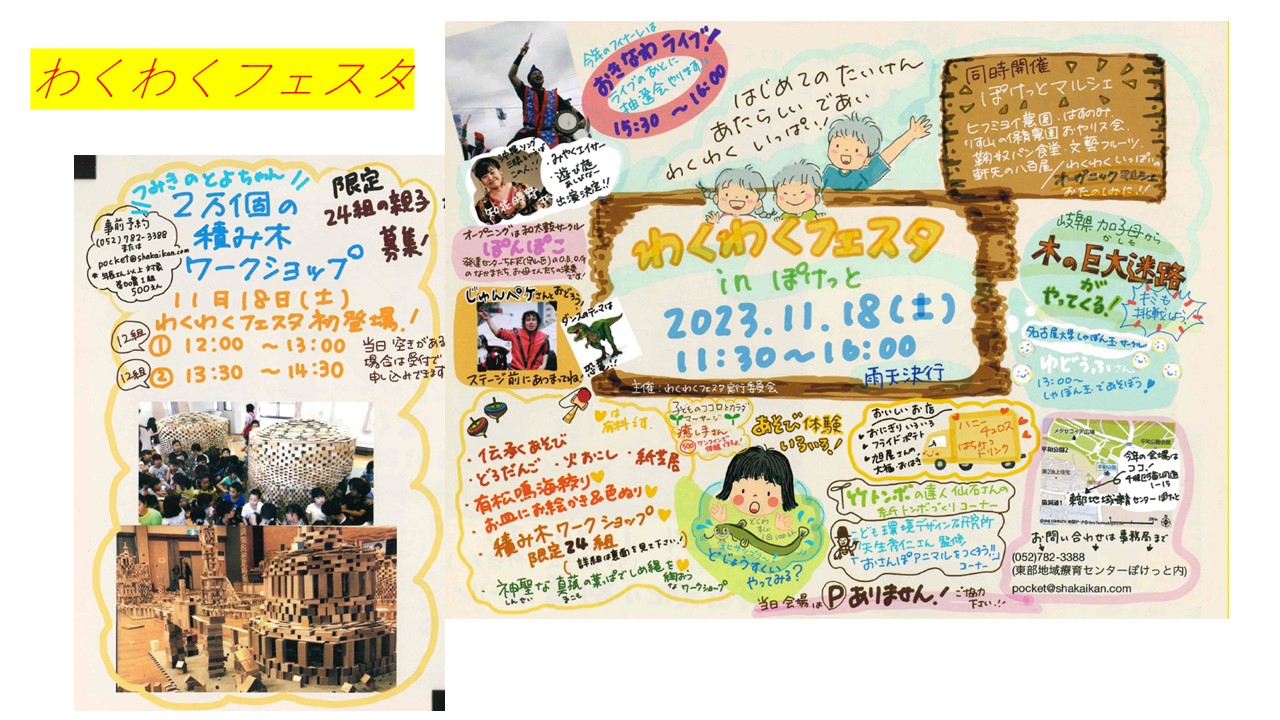 わくわくフェスタ
つみきのとよちゃん!!
2万個の
積み木
ワークショップ
限定
24組の親子
募集!
事前予約
(052)782-3388
または
pocket@shakaikan.com
参加費1組
500えん
11月18日(土)
わくわくフェスタ初登場!
12組
① 12:00 ～13:00
12組
② 13:30 ～14:30
当日空きがある
場合は受付で
申し込みできます
今年のフィナーレは
おきなわライブ!
ライブのあとに
抽選会やります!!
15:30 ～16:00
みやくエイサー
遊び庭
あしびなー
出演決定!!
はじめてのたいけん
あたらしい であい
わくわく いっぱい!!
同時開催
ぽけっとマルシェ
ヒフミヨイ農園・はすのみ.
りす山の保育農園おやリス会.
鞠奴パン食堂・文藝フルーツ.
軒先の八百屋/わくわくいっぱいの
オーガニックマルシェ
おたのしみに!!
オープニングは和太鼓サークル
ぽんぽこ
わくわくフェスタ
in ぽけっと
2023.11.18(土)
11:30～16:00
主催:わくわくフェスタ実行委員会
雨天決行
じゅんペケさんとおどろう!
ダンスのテーマは
恐竜!!
ステージ前にあつまってね!
岐阜県 加子母から
かしも
木の巨大迷路
が
やってくる!
キミも
挑戦しよう
名古屋大学しゃぼん玉サークル
ゆどうふさん
13:00～
しゃぼん玉であそぼう
は
有料です.
・伝承あそび
・どろだんご ・火おこし ・紙芝居
・有松鳴海絞り
・お皿にお絵かき&色ぬり
・積み木ワークショップ
限定24組
詳細は裏面を見て下さい!
・神聖な真菰の葉ぱでしめ縄を綯おう
しんせい まこも な ワークショップ
子どものココロとカラダ
マッサージ
癒し手さん
あそび体験
いろいろ!
どじょうすくい
やってみる?
おいしいお店
おにぎりいろいろ
フライドポテト
旭屋さんの
大福・おはぎ
ハニー
チュロス
はちみつ
ドリンク
竹トンボの達人仙石さんの
紙トンボづくりコーナー
こども環境デザイン研究所
矢生秀仁さん監修
「おさんぽアニマルをつくろう!!」
コーナー
当日会場はⓅありません! ご協力
下さい!!
メタセコイア広場
平和公園2
平和公園会館
今年の会場は
ココ!
1-15
東部地域療育センターぽけっと
お問い合わせは事務局まで
(052)782-3388
(東部地域療育センターぽけっと内)
pocket@shakaikan.com